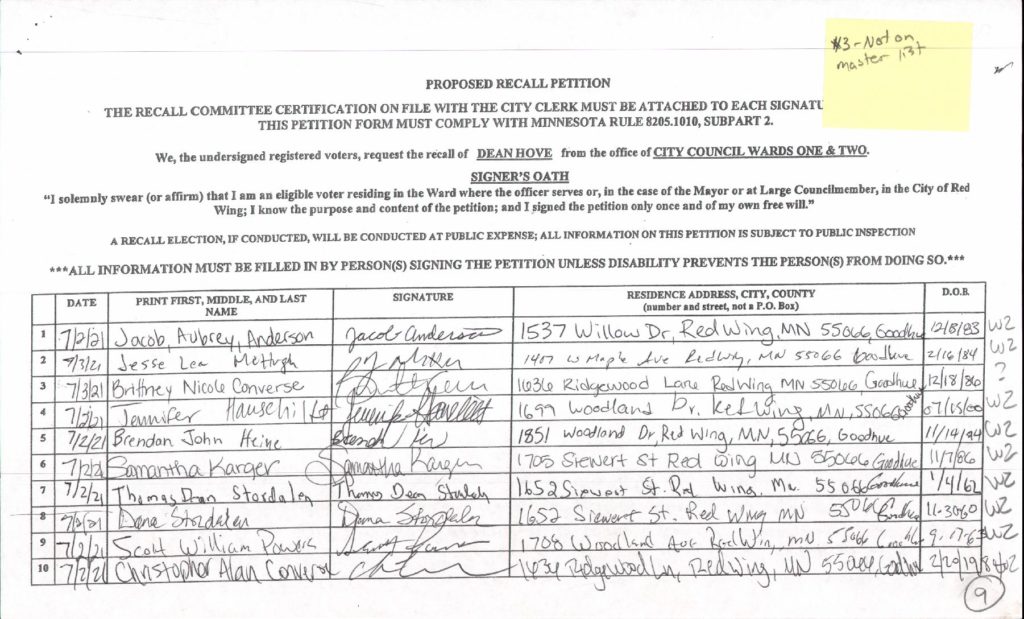 #3 - Not on
master list
PROPOSED RECALL PETITION
THE RECALL COMMITTEE CERTIFICATION ON FILE WITH THE CITY CLERK MUST BE ATTACHED TO EACH SIGNATU
THIS PETITION FORM MUST COMPLY WITH MINNESOTA RULE 8205.1010, SUBPART 2.
We, the undersigned registered voters, request the recall of DEAN HOVE from the office of CITY COUNCIL WARDS ONE & TWO.
SIGNER'S OATH
"I solemnly swear (or affirm) that I am an eligible voter residing in the Ward where the officer serves or, in the case of the Mayor or at Large Councilmember, in the City of Red
Wing; I know the purpose and content of the petition; and I signed the petition only once and of my own free will."
A RECALL ELECTION, IF CONDUCTED, WILL BE CONDUCTED AT PUBLIC EXPENSE; ALL INFORMATION ON THIS PETITION IS SUBJECT TO PUBLIC INSPECTION
***ALL INFORMATION MUST BE FILLED IN BY PERSON(S) SIGNING THE PETITION UNLESS DISABILITY PREVENTS THE PERSON(S) FROM DOING SO.***
DATE PRINT FIRST, MIDDLE, AND LAST NAME SIGNATURE RESIDENCE ADDRESS, CITY, COUNTY (number and street, not a P.O. Box) D.O.B.
1 7/2/21 Jacob, Aubrey, Anderson Jacob Anderson 1537 Willow Dr, Red Wing, MN 55066, Goodhue 12/8/83 W2
2 7/3/21 Jesse Lea McHugh 1407 W Maple Ave Redwing, MN 55066 Goodhue 2/16/84 W2
3 7/3/21 Brittney Nicole Converse 1636 Ridgewood Lane Red Wing MN 55066 Goodhue 12/18/86 ?
4 Jennifer Hausehildt 1699 Woodland Dr. Red Wing, MN, 55066 Goodhue W2
5 7/2/21 Brendan John Heine 1851 Woodland Dr, Red Wing, MN, 55066, Goodhue 11/14/94 W2
6 7/2/21 Samantha Karger Samantha Karger 1705 Siewert St Red Wing MN 55066 Goodhue 11/7/86 W2
7 7/2/21 Thomas Dean Stordalen Thomas Dean Stordalen 1652 Siewert St. Red Wing. Mn. 55066 Goodhue 1/4/62 W2
8 7/2/21 Dana Stordalen Dana Stordalen 1652 Siewert St. Red Wing MN 55066 Goodhue 11-30-60 W2
9 7/2/21 Scott William Powers 1708 Woodland Ave Red Win, mN 55066 W2
10 7/2/21 Christopher Alan Converse 1636 Ridgewood Ln, Red Wing, MN 55066, Goodhue 2/29/1984 W2
9